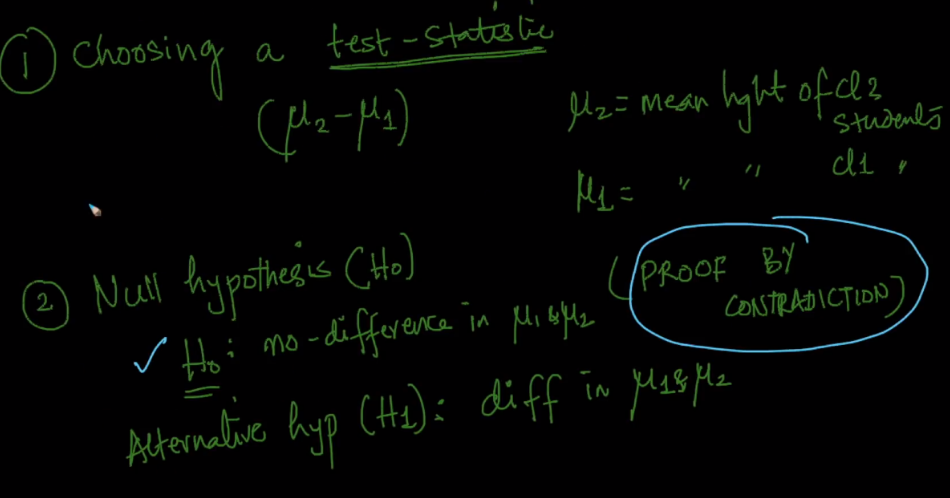 ① Choosing a test-statistic
(μ₂-μ₁)
μ₂ = mean hght of cl2 students
μ₁ = " " cl1 "
② Null hypothesis (H₀)
(PROOF BY CONTRADICTION)
H₀: no-difference in μ₁ & μ₂
Alternative hyp (H1): diff in μ₁ & μ₂